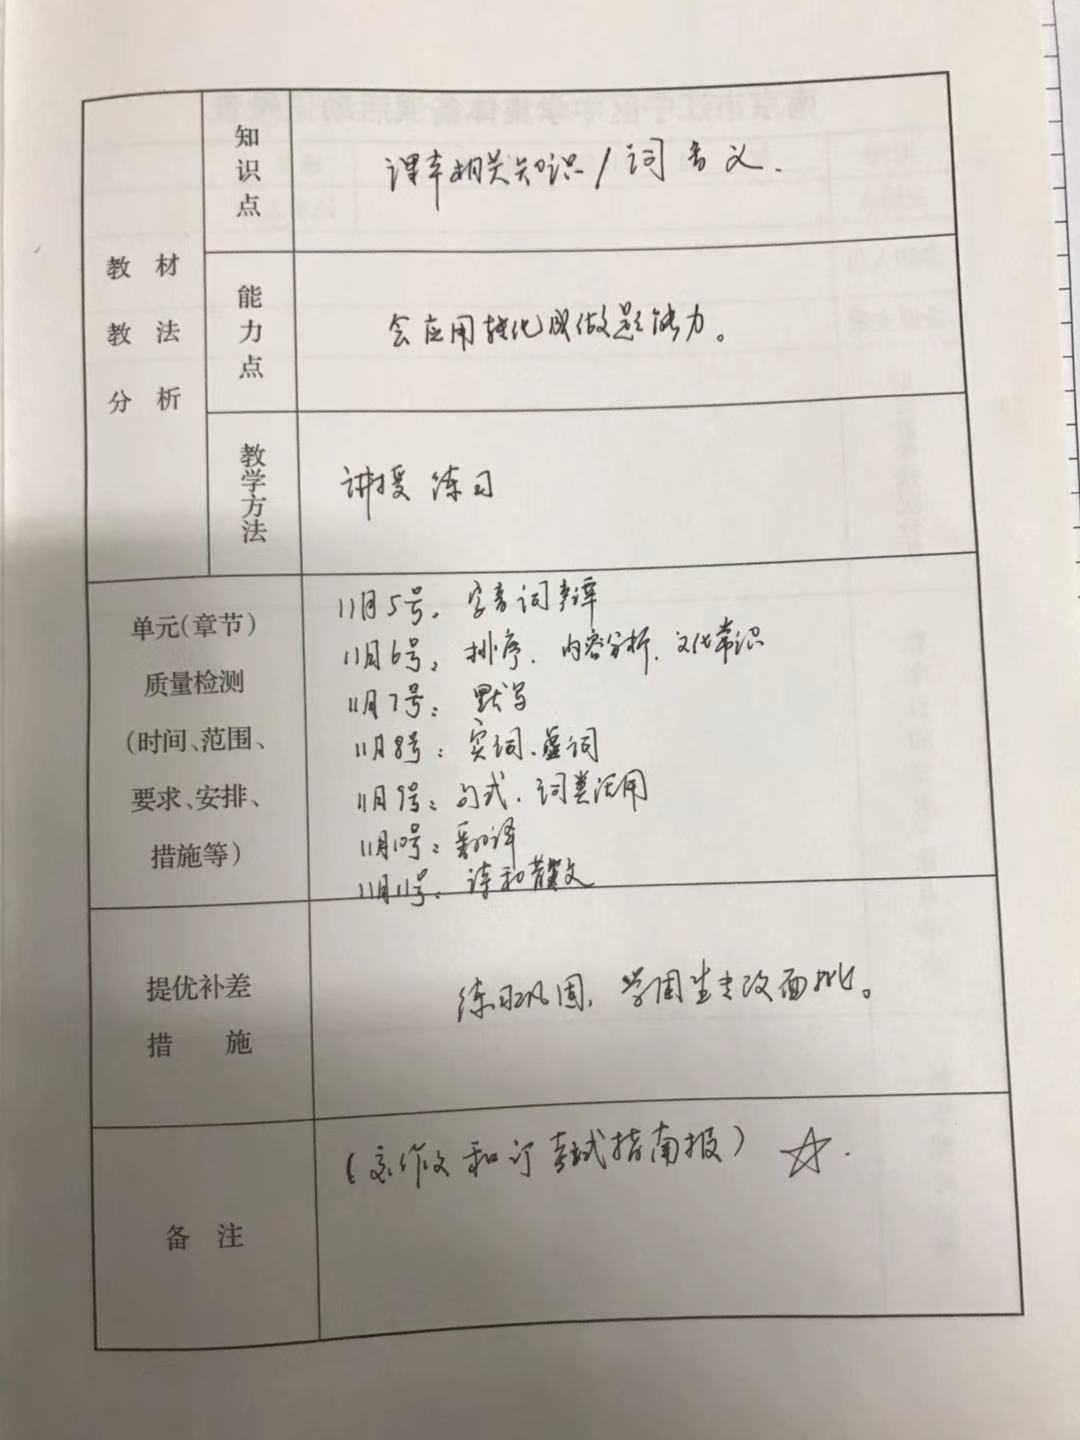 教材
教法
分析
知识点
课本相关知识/词音义.
能力点
会应用转化成做题能力。
教学方法
讲授 练习
单元(章节)
质量检测
(时间、范围、
要求、安排、
措施等)
11月5号。字音词
11月6号:排序.内容分析.文化常识
11月7号:默写
11月8号:实词.虚词
11月9号:句式.词类活用
11月10号:翻译
11月11号:诗和散文
提优补差
措施
练习巩固,学困生 改面批。
备注
(交作文和订考试指南报) ☆.